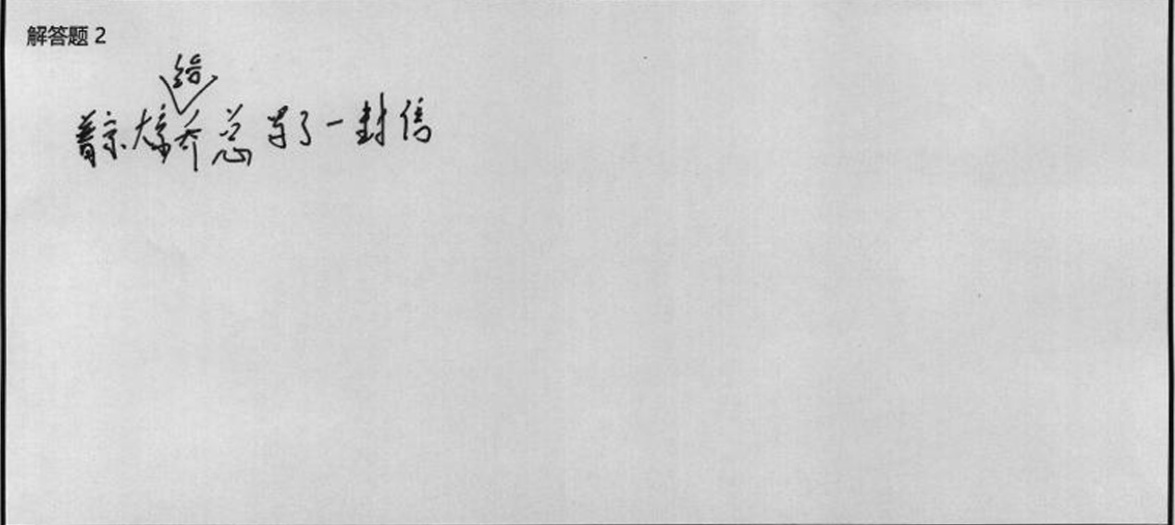 解答题 2
普京大帝给乔总写了一封信